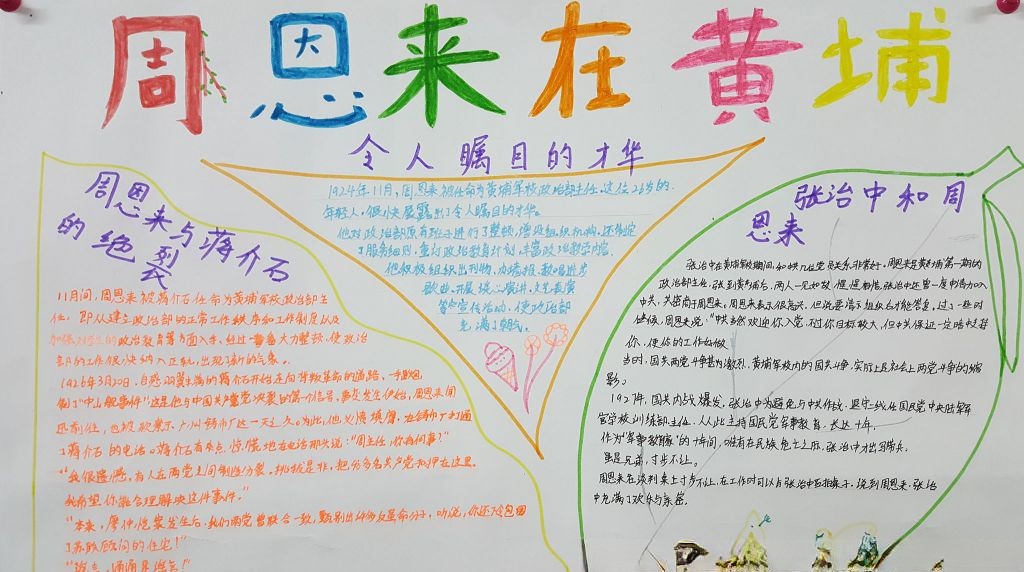 周恩来在黄埔
令人瞩目的才华
1924年11月,周恩来被任命为黄埔军校政治部主任。这位26岁的
年轻人,很快展露出了令人瞩目的才华。
他对政治部原有班子进行了整顿,增设组织机构,还制定
了服务细则,重订政治教育计划,丰富政治教学内容。
他积极组织出刊物,办墙报,教唱进步
歌曲,开展谈心演讲,文艺表演
等宣传活动,使政治部
充满了朝气。
周恩来与蒋介石
的绝裂
11月间,周恩来被蒋介石任命为黄埔军校政治部主
任。即从建立政治部的正常工作秩序和工作制度以及
加强对学生的政治教育等方面入手,经过一番大力整顿,使政治
部的工作很快纳入正轨,出现了新的气象。
1926年3月20日,自恃羽翼丰满的蒋介石开始走向背叛革命的道路,一手炮
制了"中山舰事件"这是他与中国共产党决裂的第一信号,事变发生伊始,周恩来闻
迅前往,也被软禁于广州造币厂达一天之久。为此,他义愤填膺,
了蒋介石的电话。蒋介石有点惊慌地在电话那头说:"周主任,你有何事?"
"我很遗憾,有人在两党之间制造分裂,挑拨是非,把多名共产党扣押在这里。
我希望你能合理解决这件事件。"
"本来,廖仲恺案发生后,我们两党曾联合一致,甄别出许多反革命分子,听说,你还包围
了苏联顾问的住宅!"
张治中和周
恩来
张治中在黄埔军校期间,和中共几位党员关系非常好。周恩来是黄埔第一期的
政治部主任,张
中共,共密商于周恩来。周恩来表示很高兴,但说要请示组织后才能答复。过了一些时
候,周恩来说:"中共当然欢迎你入党,不过你目标较大,但中共保证一定暗中支持
你,使你的工作好做
当时,国共两党斗争甚为激烈,黄埔军校内的国共斗争,实际上是社会上两党斗争的缩
影。
1927年,国共内战爆发,张治中为避免与中共作战,坚守三线在国民党中央陆军军
官学校训练部主任,从此主持国民党军事教育,长达十年。
作为"军事教育家"的十年间,唯有在民族危亡之际,张治中才出马带兵。
虽是兄弟,寸步不让。
周恩来在谈判桌上寸步不让,在工作时可以与张治中互拍桌子。说到周恩来,张治
中充满了欢乐与亲密。